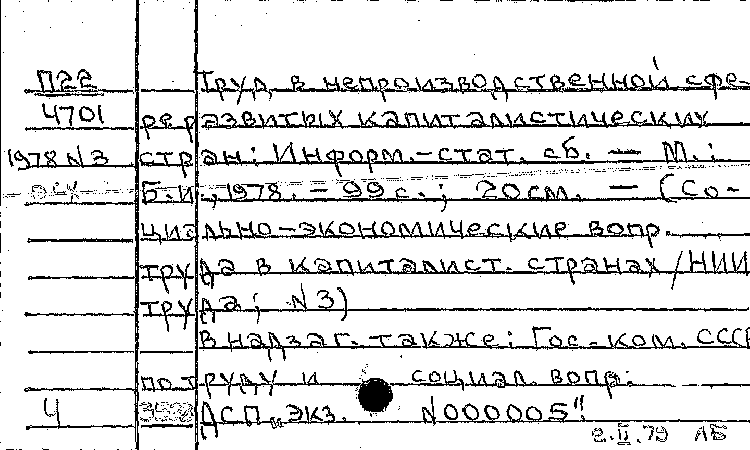 П22 Труд в непроизводственной сфе-
4701 ре развитых капиталистических
1978 N3 стран: Информ.-стат. сб. — М.:
осх Б.и., 1978. – 99 с.; 20 см. — (Со-
циально-экономические вопр.
труда в капиталист. странах / НИИ
труда; N3)
В надзаг. также: Гос. ком. СССР
по труду и социал. вопр.
4 ДСП "экз. N000005".
2.II.79 АБ